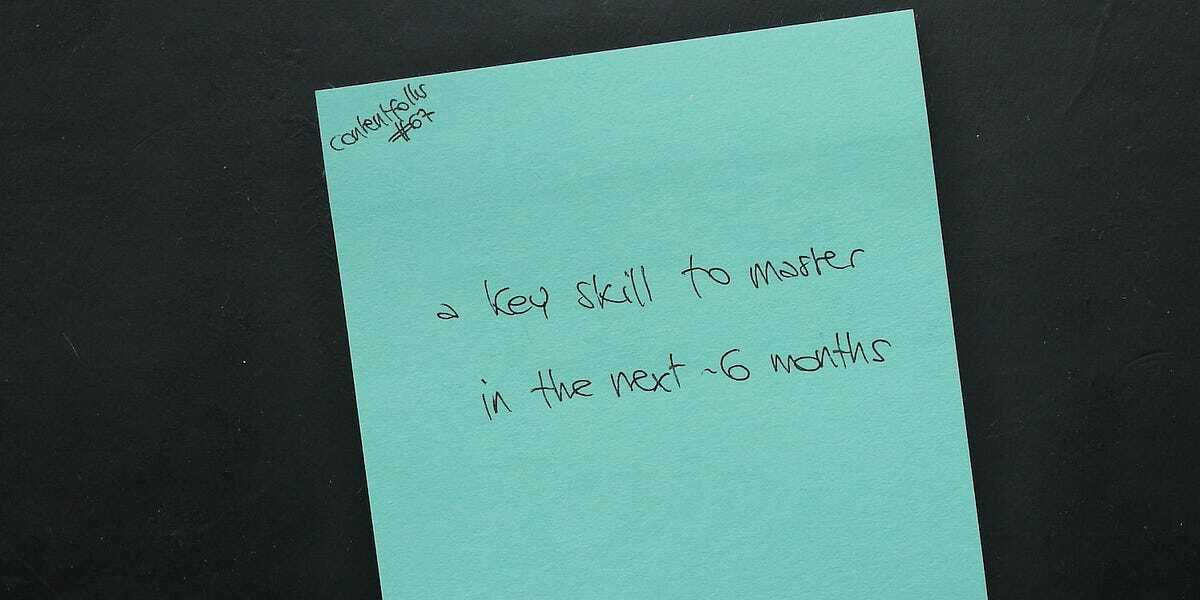 contentfolks
#67
a key skill to master
in the next ~6 months